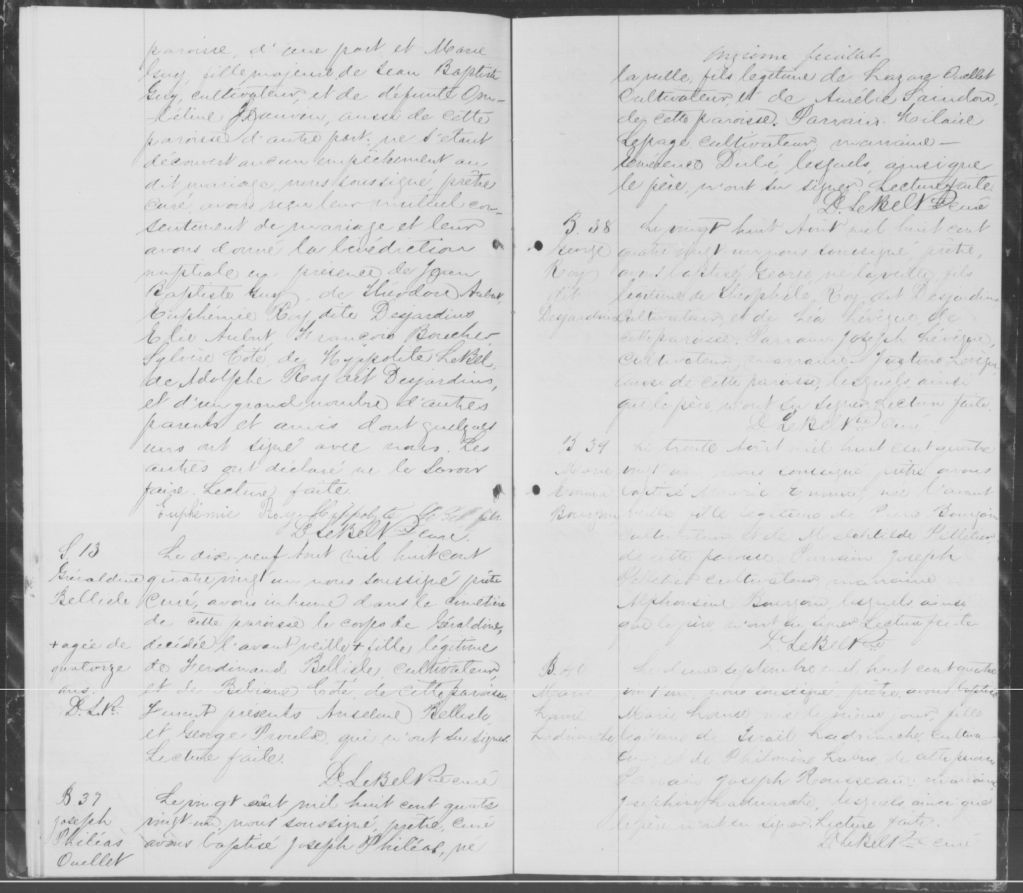 paroisse, d'une part et Marie
Guy, fille majeure de Jean Baptiste
Guy, cultivateur, et de défunte
aussi de cette
paroisse d'autre part; ne s'étant
découvert aucun empêchement au
dit mariage, nous soussigné, prêtre
curé, avons reçu leur mutuel con-
sentement de mariage et leur
avons donné la bénédiction
nuptiale en présence de Jean
Baptiste Guy, de Théodore Aubut
Euphémie Roy dite Desjardins
Elie Aubut, François Boucher,
Sylvire Coté, de Hyppolite LeBel,
de Adolphe Roy dit Desjardins,
et d'un grand nombre d'autres
parents et amis dont quelques
uns ont signé avec nous. Les
autres ont déclaré ne le savoir
faire. Lecture faite.
Euphémie Roy Hyppolyte Le Bel fils
D. LeBel Ptre curé
S. 13
Géraldine
Bellisle
+ agée de
quatorze
ans.
D. L. Pr.
Le dix neuf Aout mil huit cent
quatre vingt un nous soussigné prêtre
curé, avons inhumé dans le cimetière
de cette paroisse le corps de Géraldine,
décédée l'avant veille + fille légitime
de Ferdinand Bellisle, cultivateur,
et de Bibiane Coté, de cette paroisse
Furent présents Anselme Bellisle
et George Proulx qui n'ont su signer
Lecture faite.
D. LeBel Ptre curé
B 37
Joseph
Philéas
Ouellet
Le vingt aôut mil huit cent quatre
vingt un, nous soussigné, prêtre, curé
avons baptisé Joseph Philéas, né
Onzième feuillet
la veille, fils légitime de Lazare Ouellet
Cultivateur et de Aurélie Saindon,
de cette paroisse. Parrain Hilaire
Lepage cultivateur, marraine -
Dubé, lesquels, ainsi que
le père, n'ont su signer. Lecture faite
D. LeBel Ptre curé
B. 38
George
Roy
dit
Desjardins
Le vingt huit Aout mil huit cent
quatre vingt un nous soussigné, prêtre,
avons baptisé George né la veille, fils
légitime de Théophile Roy dit Desjardins
Cultivateur, et de Léa Lévêque de
cette paroisse. Parrain Joseph Lévêque,
Cultivateur, marraine Justine Lévêque
aussi de cette paroisse, lesquels ainsi
que le père n'ont su signer. Lecture faite.
D. LeBel Ptre curé
B 39
Marie
Emma
Bourgoin
Le trente Août mil huit cent quatre
vingt un, nous soussigné prêtre avons
baptisé Marie Emma, née l'avant
veille, fille légitime de Pierre Bourgoin
Cultivateur et de Mathilde Pelletier
de cette paroisse Parrain Joseph
Pelletier cultivateur, marraine
Alphonsine Bourgoin, lesquels ainsi
que le père n'ont su signer Lecture faite
D. LeBel Ptre
B. 40
Marie
Louise
septembre mil huit cent quatre
vingt un, nous soussigné, prêtre, avons baptisé
Marie Louise née le même jour, fille
légitime de Israël Ladrianche, Cultiva-
teur, et de Philomène de cette paroisse
Parrain Joseph Rousseau, marraine
Joséphine lesquels ainsi que
le père n'ont su signer. Lecture faite.
D. LeBel Ptre curé